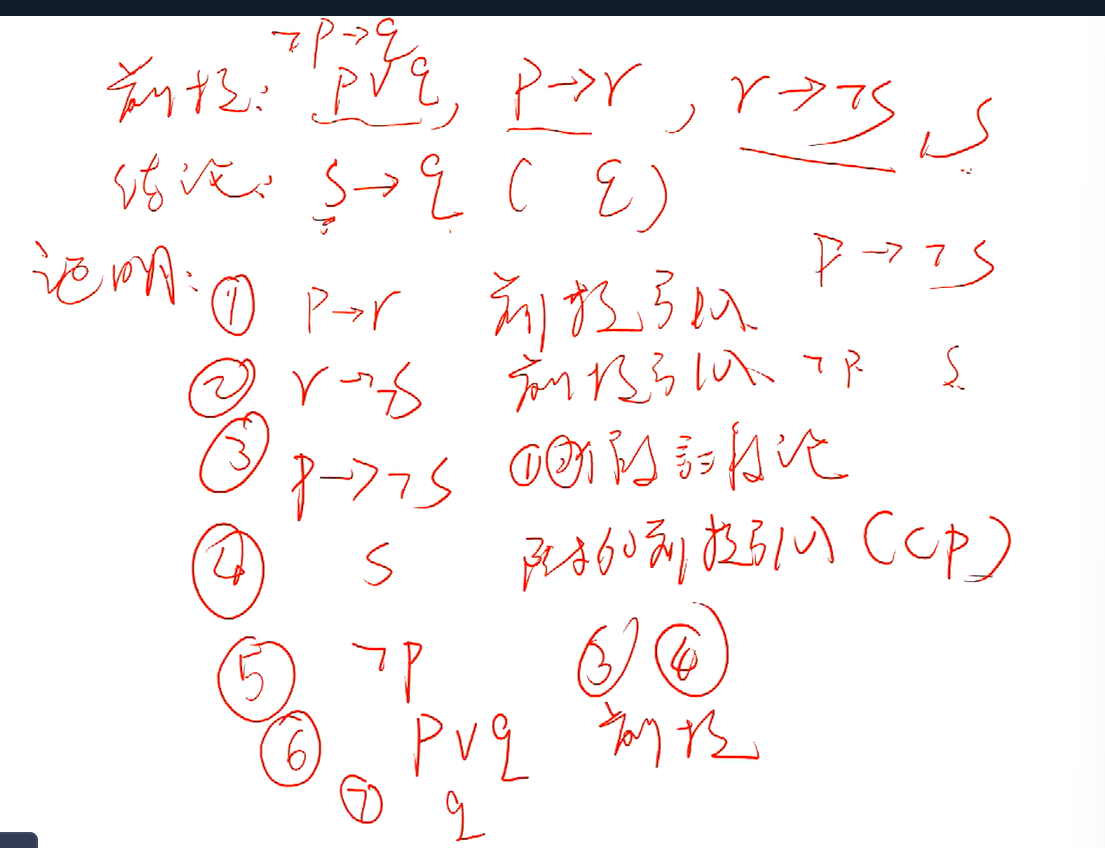 ¬p→q
前提: p∨q, p→r, r→¬s, s
结论: s→q ( q )
p→¬s
证明: ① p→r 前提引入
② r→¬s 前提引入 ¬p s
③ p→¬s ①②假言三段论
④ s 附加前提引入 (CP)
⑤ ¬p ③④
⑥ p∨q 前提
⑦ q